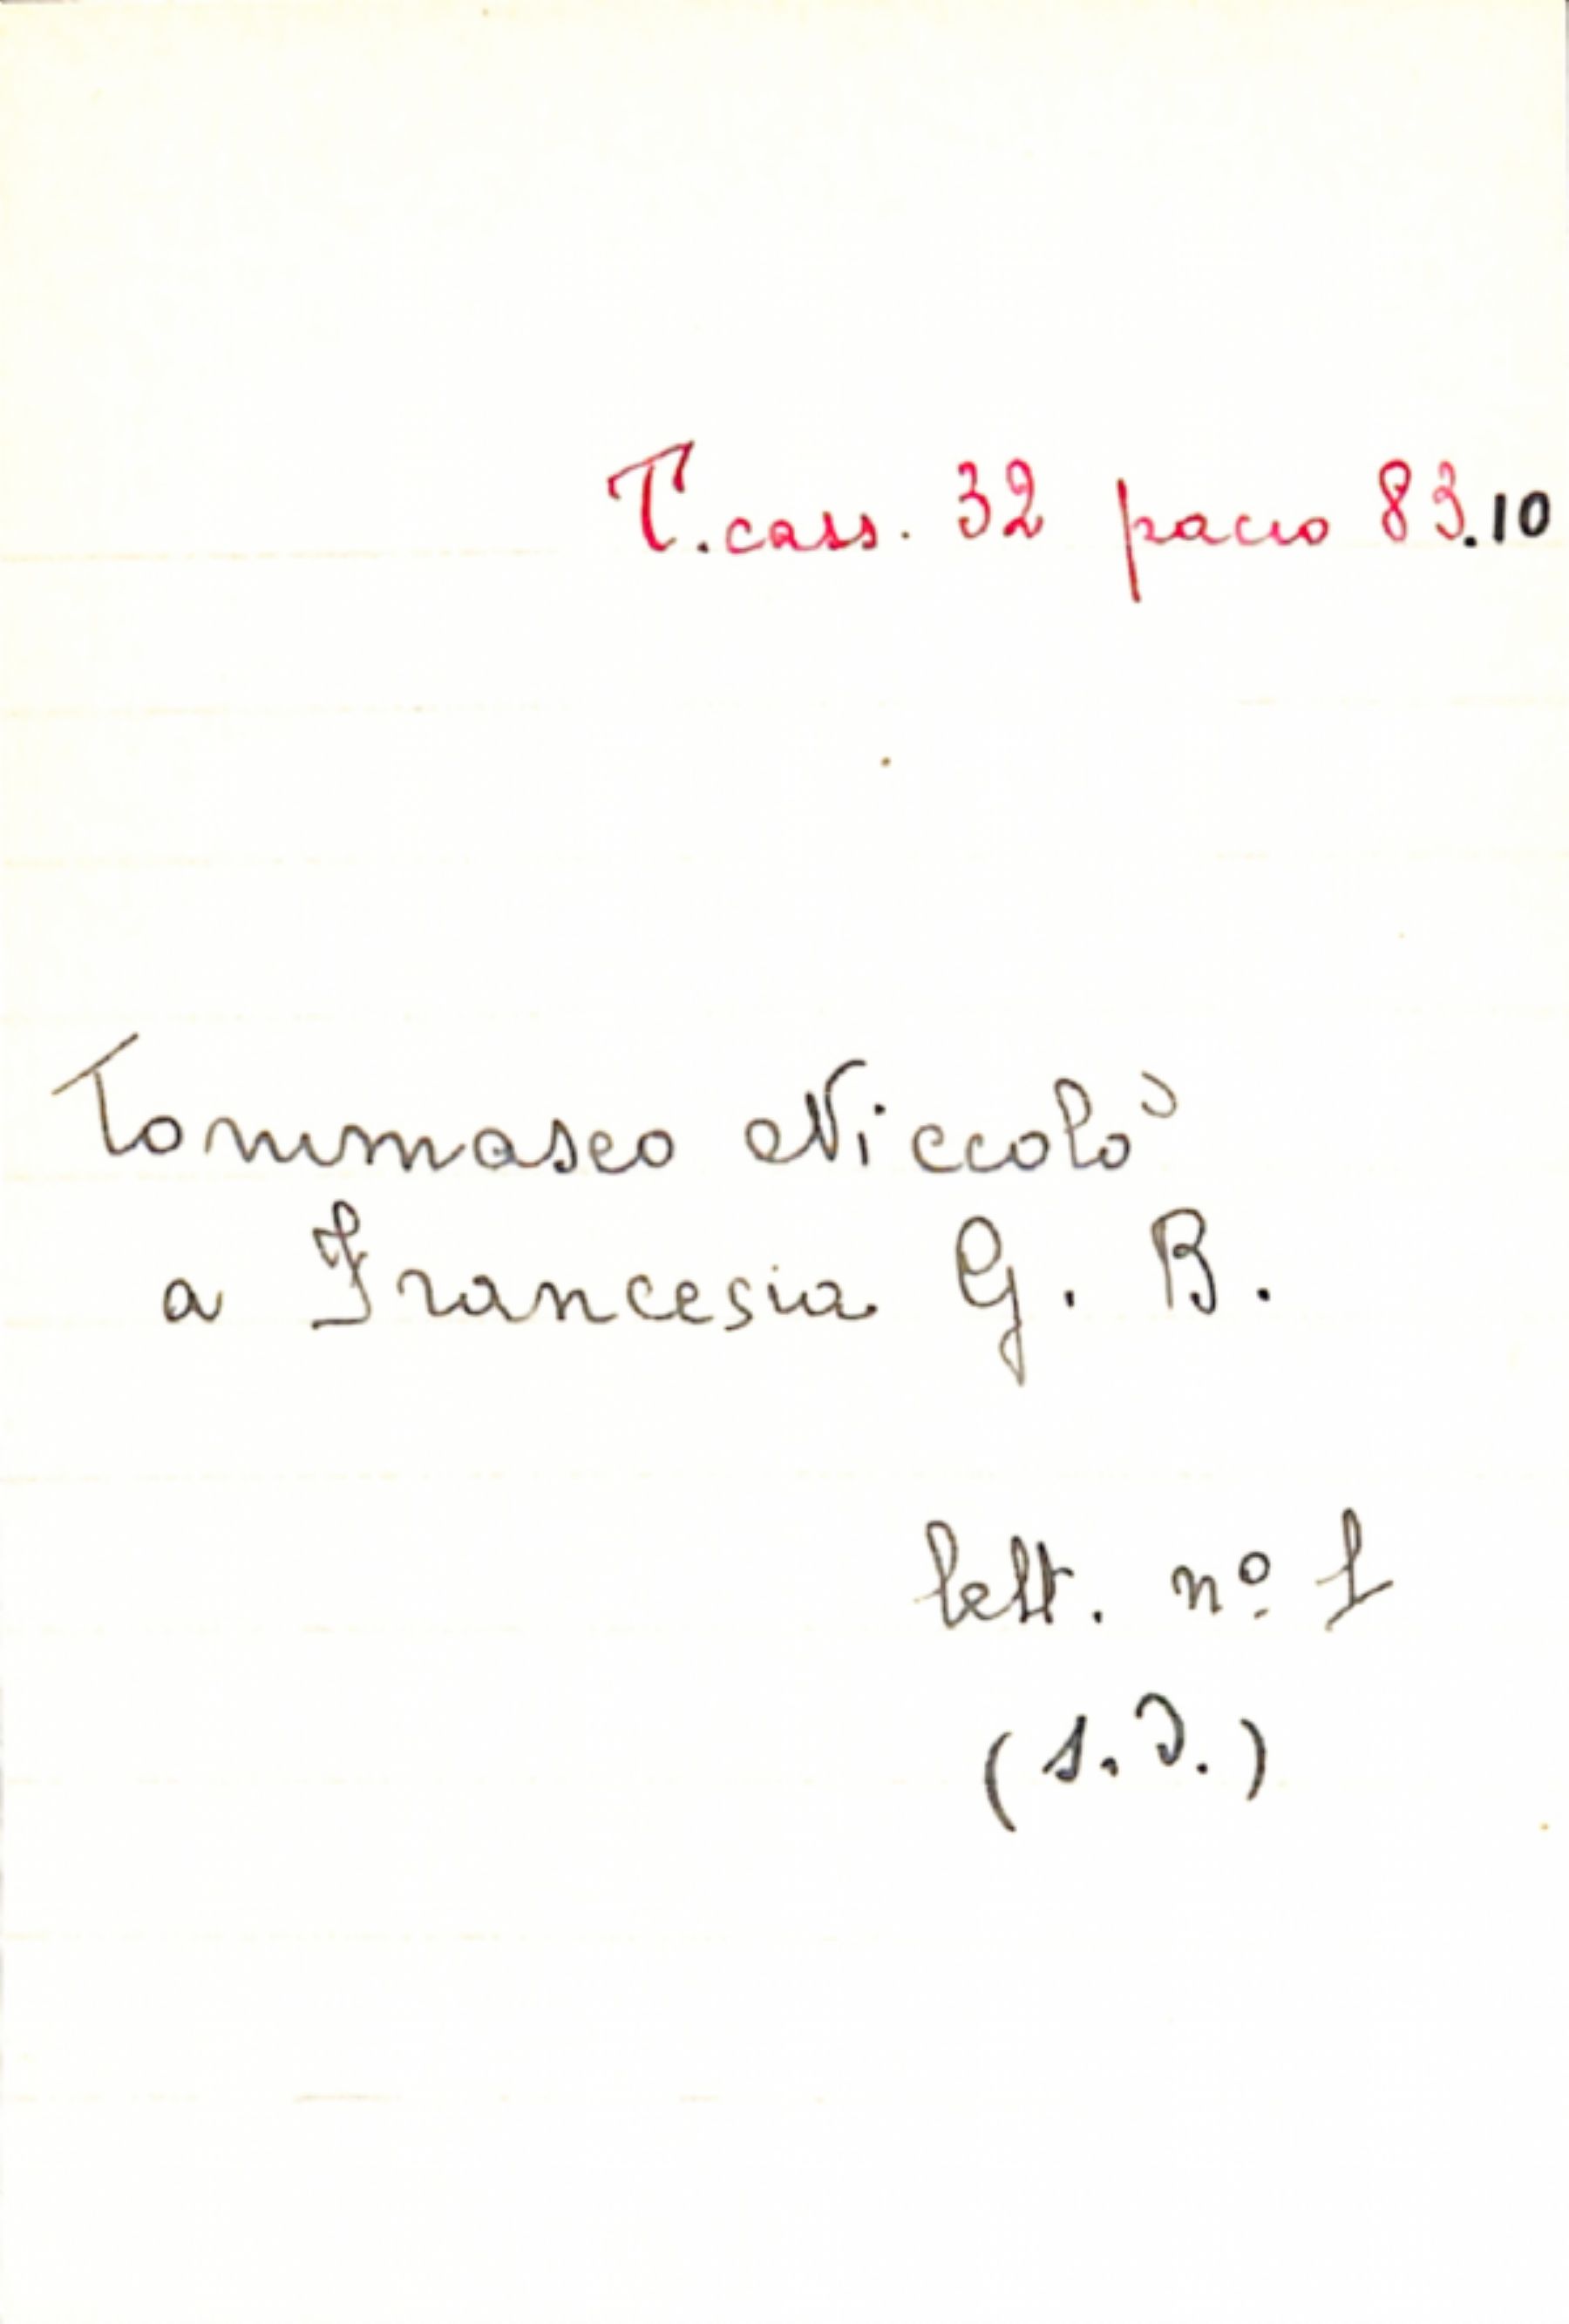 T. cass. 32 pacco 83.10
Tommaseo Niccolò
a Francesia G. B.
lett. nº 1
(s.d.)